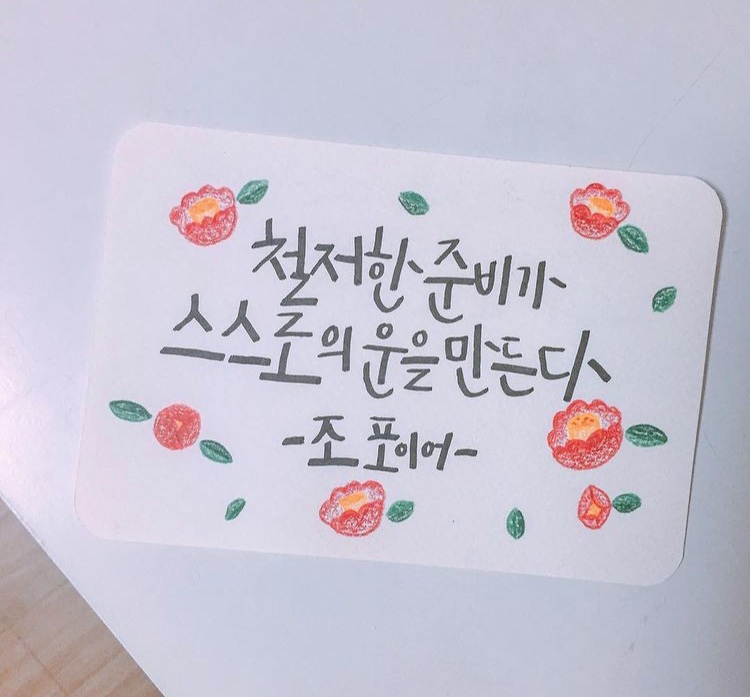 철저한 준비가
스스로의 운을 만든다
-조 포이어-